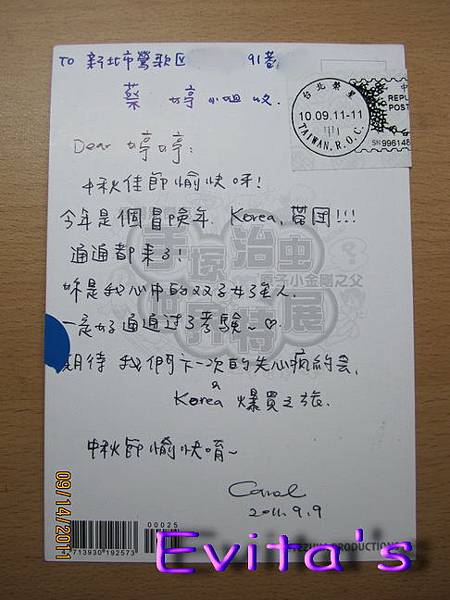 TO 新北市鶯歌区 91巷
蔡 婷小姐收.
台北
10.09.11-11
TAIWAN.R.O.C.
REPU
POST
SN996148
Dear 婷婷:
中秋佳節愉快呀!
今年是個冒險年. Korea, 苗圃!!!
通通都來了!
妳是我心中的双子女強人.
一定好通通过了考驗~♡.
期待 我們下一次的失心瘋約会.
Korea 爆買之旅.
中秋節愉快唷~
Carol
2011.9.9
手塚治虫
原子小金剛之父
世界特展
00025
4713930192573
PRODUCTIONS
09/14/2011
Evita's